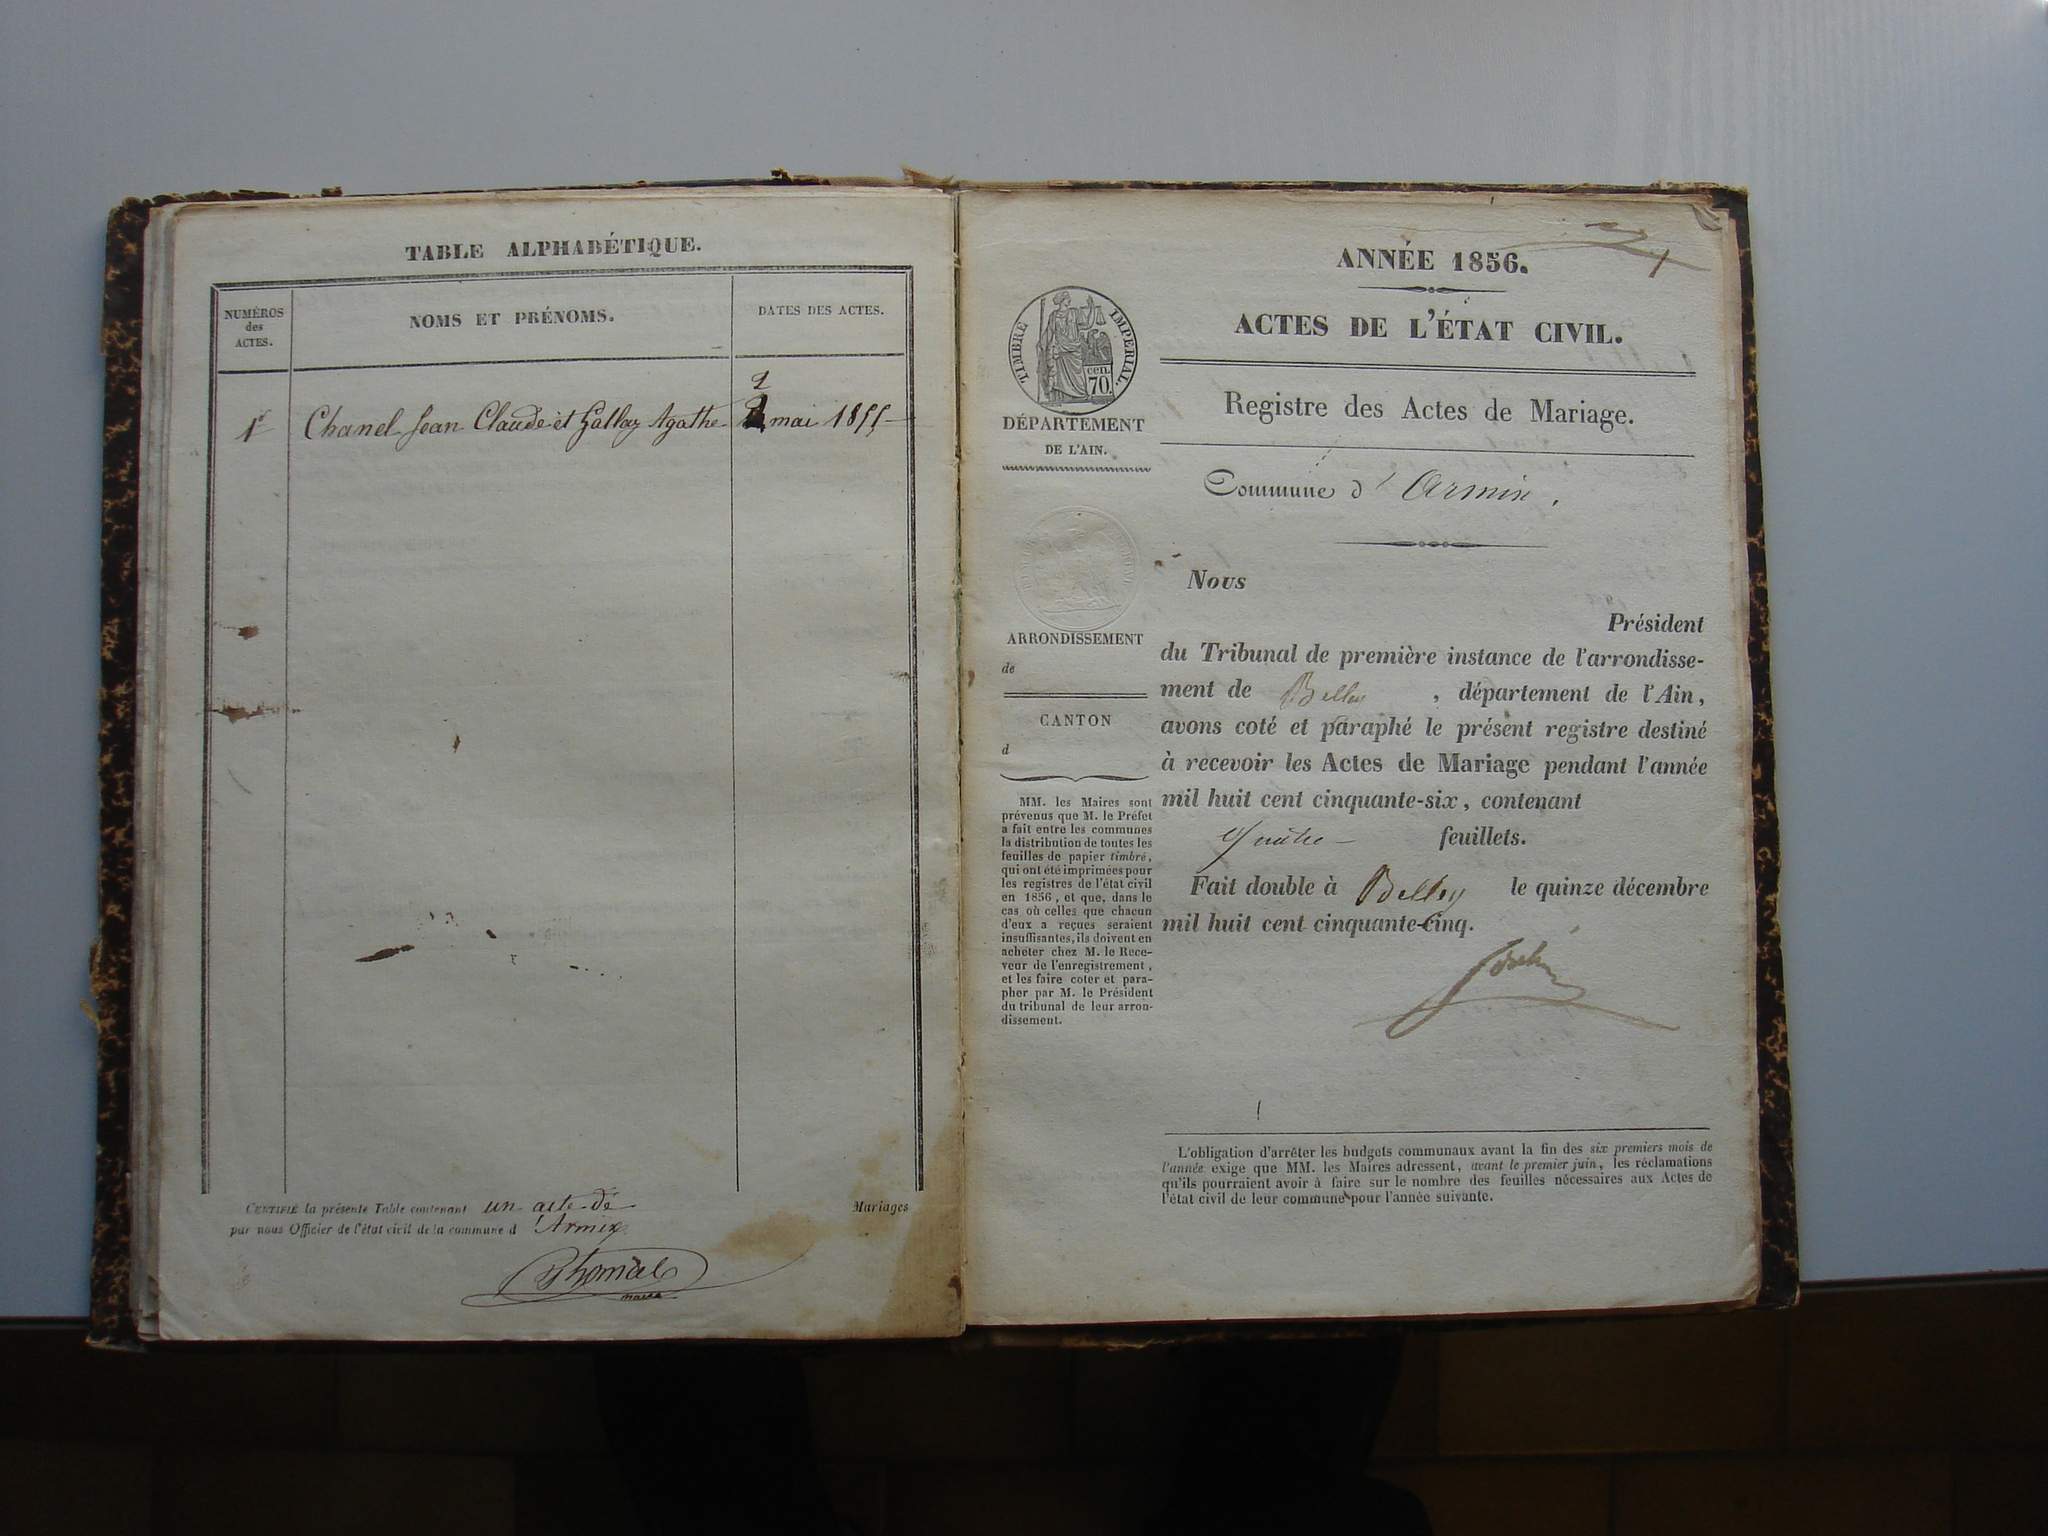 TABLE ALPHABÉTIQUE.
NUMÉROS
des
ACTES.
NOMS ET PRÉNOMS.
DATES DES ACTES.
2
1er Chanel Jean Claude et Gallay Agathe 2 mai 1855
CERTIFIÉ la présente Table contenant un acte de Mariages
par nous Officier de l'état civil de la commune d'Armix
maire
ANNÉE 1856.
ACTES DE L'ÉTAT CIVIL.
TIMBRE IMPÉRIAL.
cen.
70.
DÉPARTEMENT
DE L'AIN.
ARRONDISSEMENT
de
CANTON
d
MM. les Maires sont
prévenus que M. le Préfet
a fait entre les communes
la distribution de toutes les
feuilles de papier timbré,
qui ont été imprimées pour
les registres de l'état civil
en 1856, et que, dans le
cas où celles que chacun
d'eux a reçues seraient
insuffisantes, ils doivent en
acheter chez M. le Rece-
veur de l'enregistrement,
et les faire coter et para-
pher par M. le Président
du tribunal de leur arron-
dissement.
Registre des Actes de Mariage.
Commune d'Armix.
Nous
Président
du Tribunal de première instance de l'arrondisse-
ment de Belley, département de l'Ain,
avons coté et paraphé le présent registre destiné
à recevoir les Actes de Mariage pendant l'année
mil huit cent cinquante-six, contenant
quatre feuillets.
Fait double à Belley le quinze décembre
mil huit cent cinquante-cinq.
L'obligation d'arrêter les budgets communaux avant la fin des six premiers mois de
l'année exige que MM. les Maires adressent, avant le premier juin, les réclamations
qu'ils pourraient avoir à faire sur le nombre des feuilles nécessaires aux Actes de
l'état civil de leur commune pour l'année suivante.